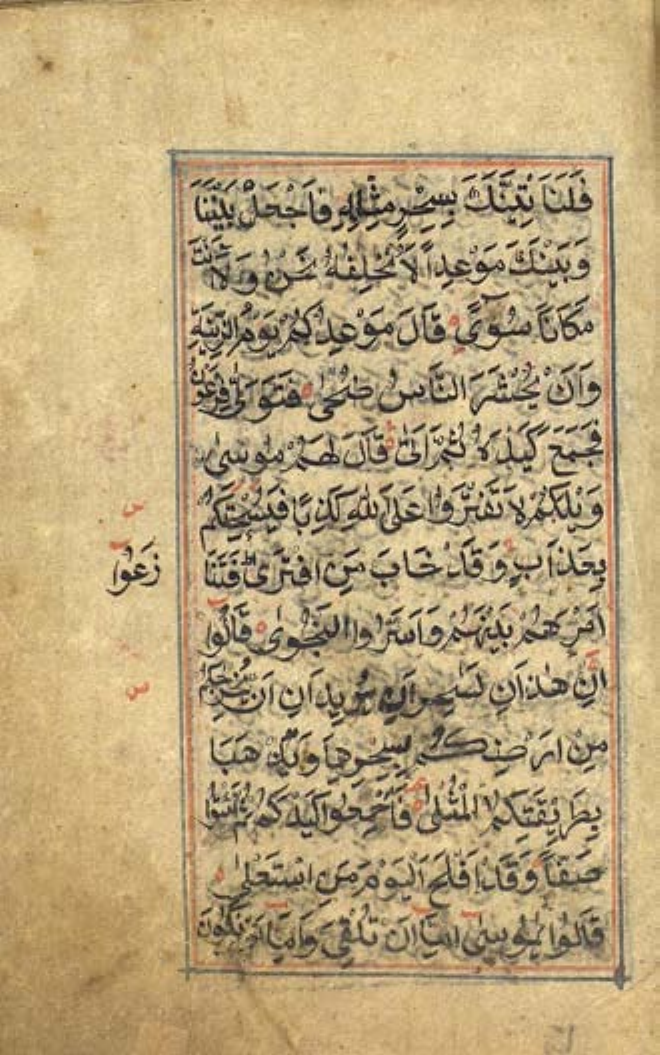 فَلَنَأْتِيَنَّكَ بِسِحْرٍ مِثْلِهِ فَاجْعَلْ بَيْنَنَا
وَبَيْنَكَ مَوْعِدًا لَا نُخْلِفُهُ نَحْنُ وَلَا أَنْتَ
مَكَانًا سُوًى قَالَ مَوْعِدُكُمْ يَوْمُ الزِّينَةِ
وَأَنْ يُحْشَرَ النَّاسُ ضُحًى فَتَوَلَّى فِرْعَوْنُ
فَجَمَعَ كَيْدَهُ ثُمَّ أَتَى قَالَ لَهُمْ مُوسَى
وَيْلَكُمْ لَا تَفْتَرُوا عَلَى اللَّهِ كَذِبًا فَيُسْحِتَكُمْ
بِعَذَابٍ وَقَدْ خَابَ مَنِ افْتَرَى فَتَنَا
زَعُوا
أَمْرَهُمْ بَيْنَهُمْ وَأَسَرُّوا النَّجْوَى قَالُوا
إِنْ هَذَانِ لَسَاحِرَانِ يُرِيدَانِ أَنْ يُخْرِجَاكُمْ
مِنْ أَرْضِكُمْ بِسِحْرِهِمَا وَيَذْهَبَا
بِطَرِيقَتِكُمُ الْمُثْلَى فَأَجْمِعُوا كَيْدَكُمْ ثُمَّ ائْتُوا
صَفًّا وَقَدْ أَفْلَحَ الْيَوْمَ مَنِ اسْتَعْلَى
قَالُوا يَا مُوسَى إِمَّا أَنْ تُلْقِيَ وَإِمَّا أَنْ نَكُونَ